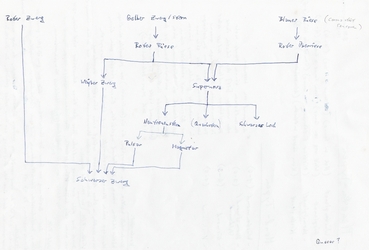 Roter Zwerg
Gelber Zwerg/Stern
Blauer Riese
Roter Riese
Roter
Weißer Zwerg
Supernova
Neutronenstern
(Quarkstern)
Schwarzes Loch
Pulsar
Magnetar
Schwarzer Zwerg
Quasar ?